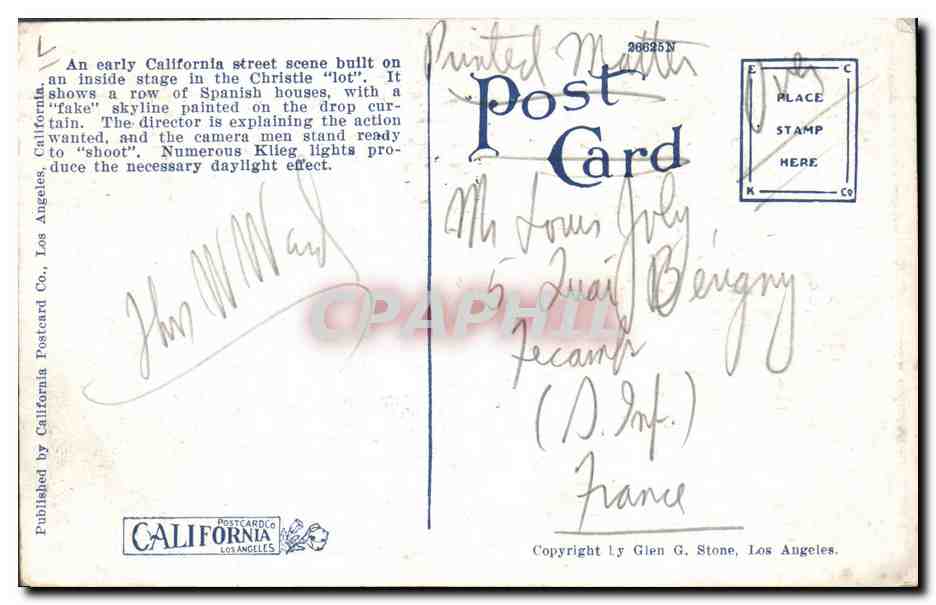 An early California street scene built on
an inside stage in the Christie "lot". It
shows a row of Spanish houses, with a
"fake" skyline painted on the drop cur-
tain. The director is explaining the action
wanted, and the camera men stand ready
to "shoot". Numerous Klieg lights pro-
duce the necessary daylight effect.
Published by California Postcard Co., Los Angeles, California.
Thos W Ward
CALIFORNIA
POSTCARD Co
LOS ANGELES
Printed Matter
26625N
Post
Card
E C
PLACE
STAMP
HERE
K Co
Over
Mr Louis Joly
5 Quai Bérigny
Fecamp
(S. Inf.)
France
Copyright by Glen G. Stone, Los Angeles.
CPAPHIL